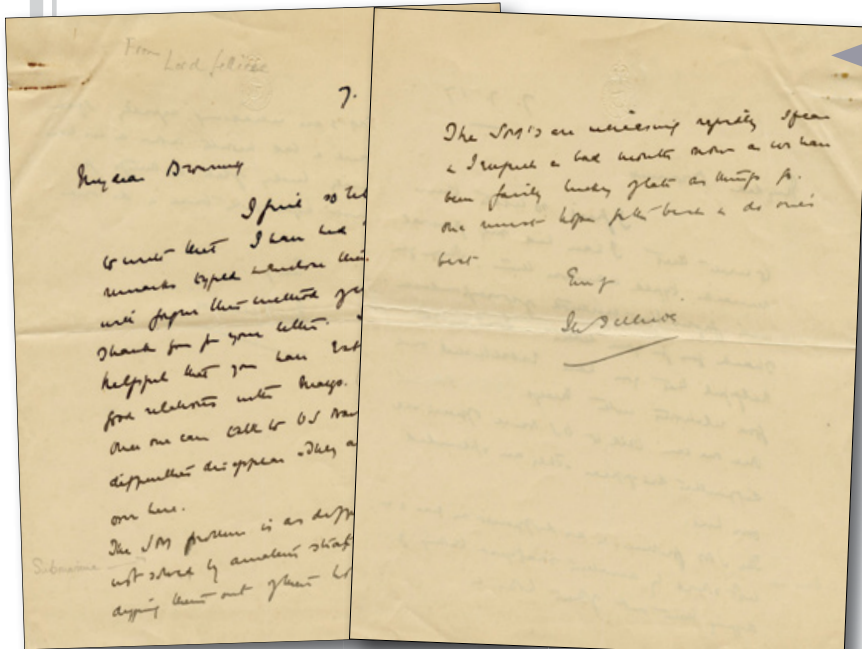 From Lord Jellicoe
7.
My dear Browning
I find so
to write that I have had
remarks typed
will forgive this method of
Thank you for your letter.
helpful that you have
good relations with Mayo.
Once one can talk to U S
difficulties disappear & they
over here.
The SM problem is as
not solved by amateur
digging them out of their
Submarine
The SM's are increasing rapidly I fear
& I expect a bad month now as we have
been fairly lucky of late as things go.
One must hope for the best & do one's
best
J R Jellicoe